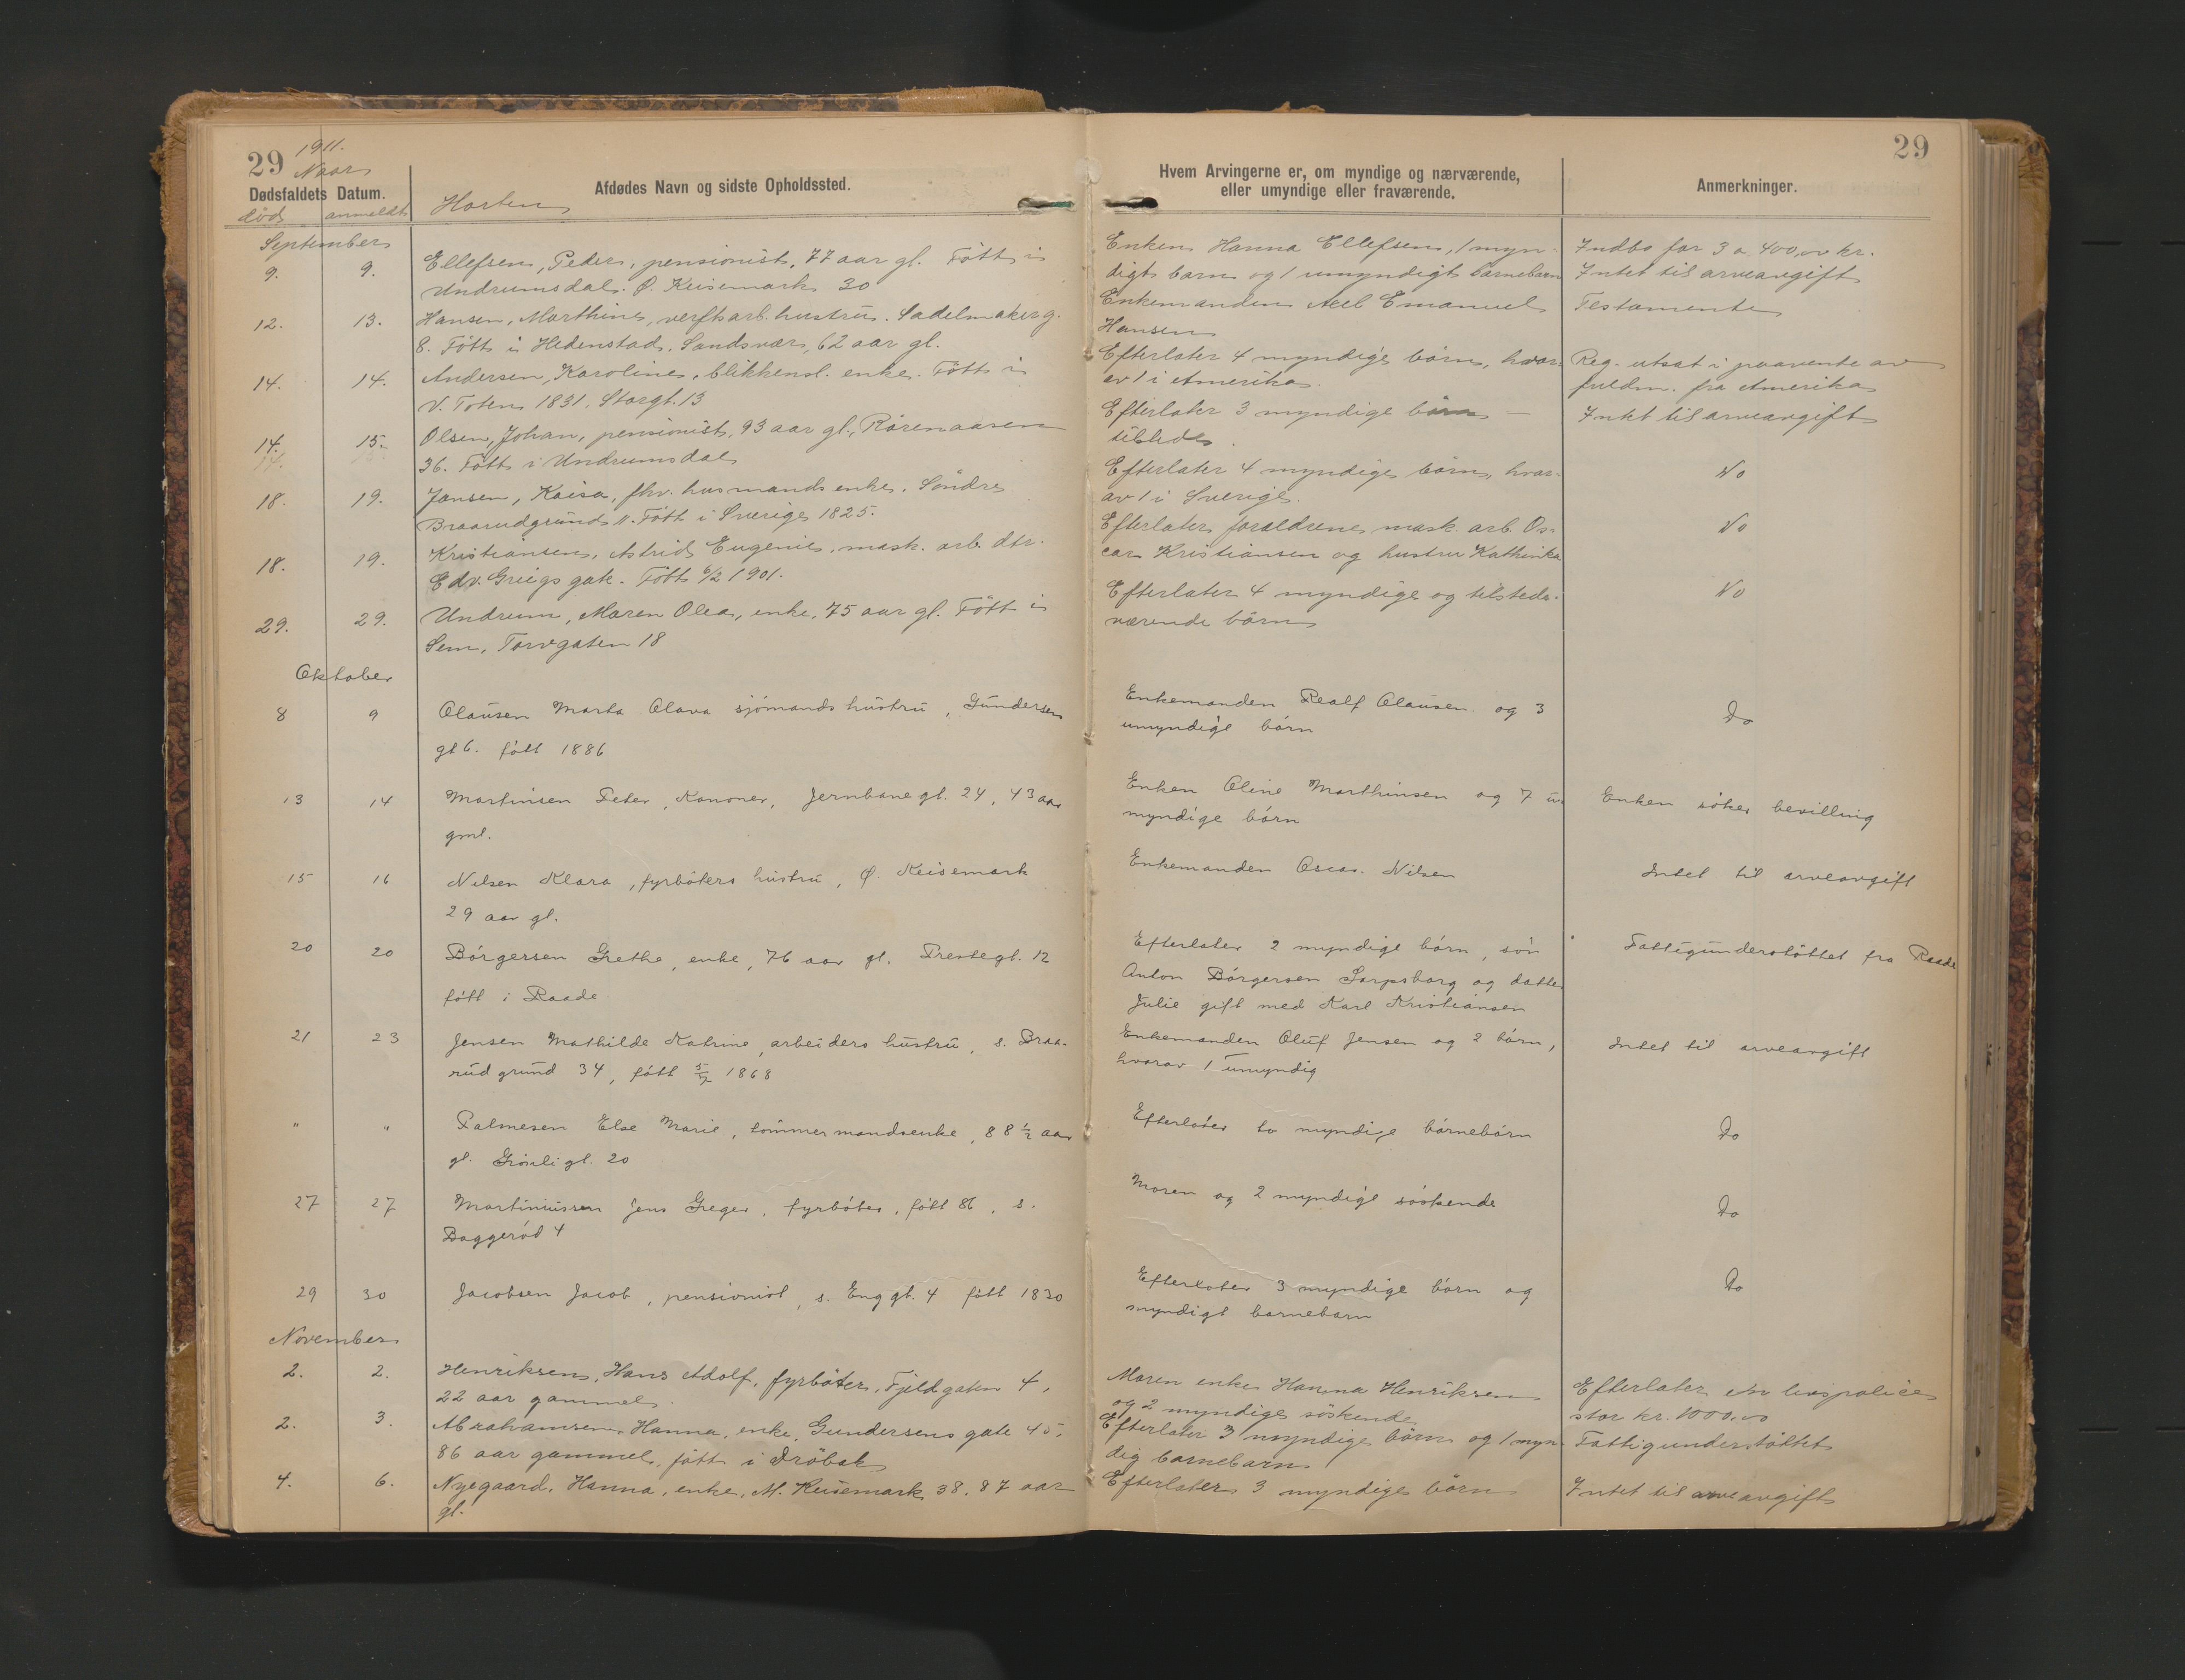 29 1911. Naar
Dødsfaldets Datum.
død anmeldt
Horten
Afdødes Navn og sidste Opholdssted.
September
9. 9. Ellefsen, Peder, pensionist, 77 aar gl. Født i
Undrumsdal. Ø. Keisemark 30
12. 13. Hansen, Marthine, verftsarb. hustru. Sadelmakerg.
8. Født i Hedenstad, Sandsvær, 62 aar gl.
14. 14. Andersen, Karoline, blikkensl. enke. Født i
V. Toten 1831. Storgt. 13
14. 15. Olsen, Johan, pensionist, 93 aar gl., Rørenaasen
36. Født i Undrumsdal
18. 19. Jansen, Kaisa, fhv. husmandsenke. Søndre
Braarudgrund 11. Født i Sverige 1825.
18. 19. Kristiansen, Astrid Eugenie, mask. arb. dtr.
Edv. Griegs gate. Født 6/2 1901.
29. 29. Undrum, Maren Olea, enke, 75 aar gl. Født i
Sem, Torvgaten 18
Oktober
8 9 Olausen Marta Olava sjømands hustru, Gundersens
gt 6. født 1886
13 14 Martinsen Peter, Kanoner, Jernbanegt. 24, 43 aar
gml.
15 16 Nilsen Klara, fyrbøters hustru, Ø. Keisemark
29 aar gl.
20 20 Børgersen Grethe, enke, 76 aar gl. Prestegt. 12
født i Raade
21 23 Jensen Mathilde Katrine, arbeiders hustru, s. Braa-
rud grund 34, født 5/7 1868
" " Palmesen Else Marie, tømmermandsenke, 88 1/2 aar
gl. Grønligt. 20
27 27 Martiniussen Jens Greger, fyrbøter, født 86, s.
Baggerød 4
29 30 Jacobsen Jacob, pensionist, s. Enggt. 4 født 1830
November
2. 2. Henriksen, Hans Adolf, fyrbøter, Fjeldgaten 4,
22 aar gammel.
2. 3. Abrahamsen, Hanna, enke, Gundersens gate 45,
86 aar gammel, født i Drøbak
4. 6. Nyegaard, Hanna, enke, M. Keisemark 38, 87 aar
gl.
29
Hvem Arvingerne er, om myndige og nærværende,
eller umyndige eller fraværende.
Anmerkninger.
Enken Hanna Ellefsen, 1 myn- Indbo for 3 a 400,00 kr.
digt barn og 1 umyndigt barnebarn Intet til arveavgift
Enkemanden Axel Emanuel Testamente
Hansen
Efterlater 4 myndige børn, hvor- Reg. utsat i paavente av
av 1 i Amerika. fuldm. fra Amerika
Efterlater 3 myndige børn — Intet til arveavgift
tilstede.
Efterlater 4 myndige børn, hvor- Do
av 1 i Sverige.
Efterlater forældrene mask. arb. Os- Do
car Kristiansen og hustru Kathinka
Efterlater 4 myndige og tilstede- Do
værende børn
Enkemanden Realf Olausen og 3 Do
umyndige børn
Enken Oline Marthinsen og 7 u- Enken søker bevilling
myndige børn
Enkemanden Oscar Nilsen Intet til arveavgift
Efterlater 2 myndige børn, søn Fattigunderstøttet fra Raade
Anton Børgersen Sarpsborg og datter
Julie gift med Karl Kristiansen
Enkemanden Oluf Jensen og 2 børn, Intet til arveavgift
hvorav 1 umyndig
Efterlater to myndige børnebørn Do
Moren og 2 myndige søskende Do
Efterlater 3 myndige børn og Do
myndigt barnebarn
Moren enke Hanna Henriksen Efterlater en livspolice
og 2 myndige søskende stor kr. 1000,00
Efterlater 3 myndige børn og 1 myn- Fattigunderstøttet
dig barnebarn
Efterlater 3 myndige børn Intet til arveavgift